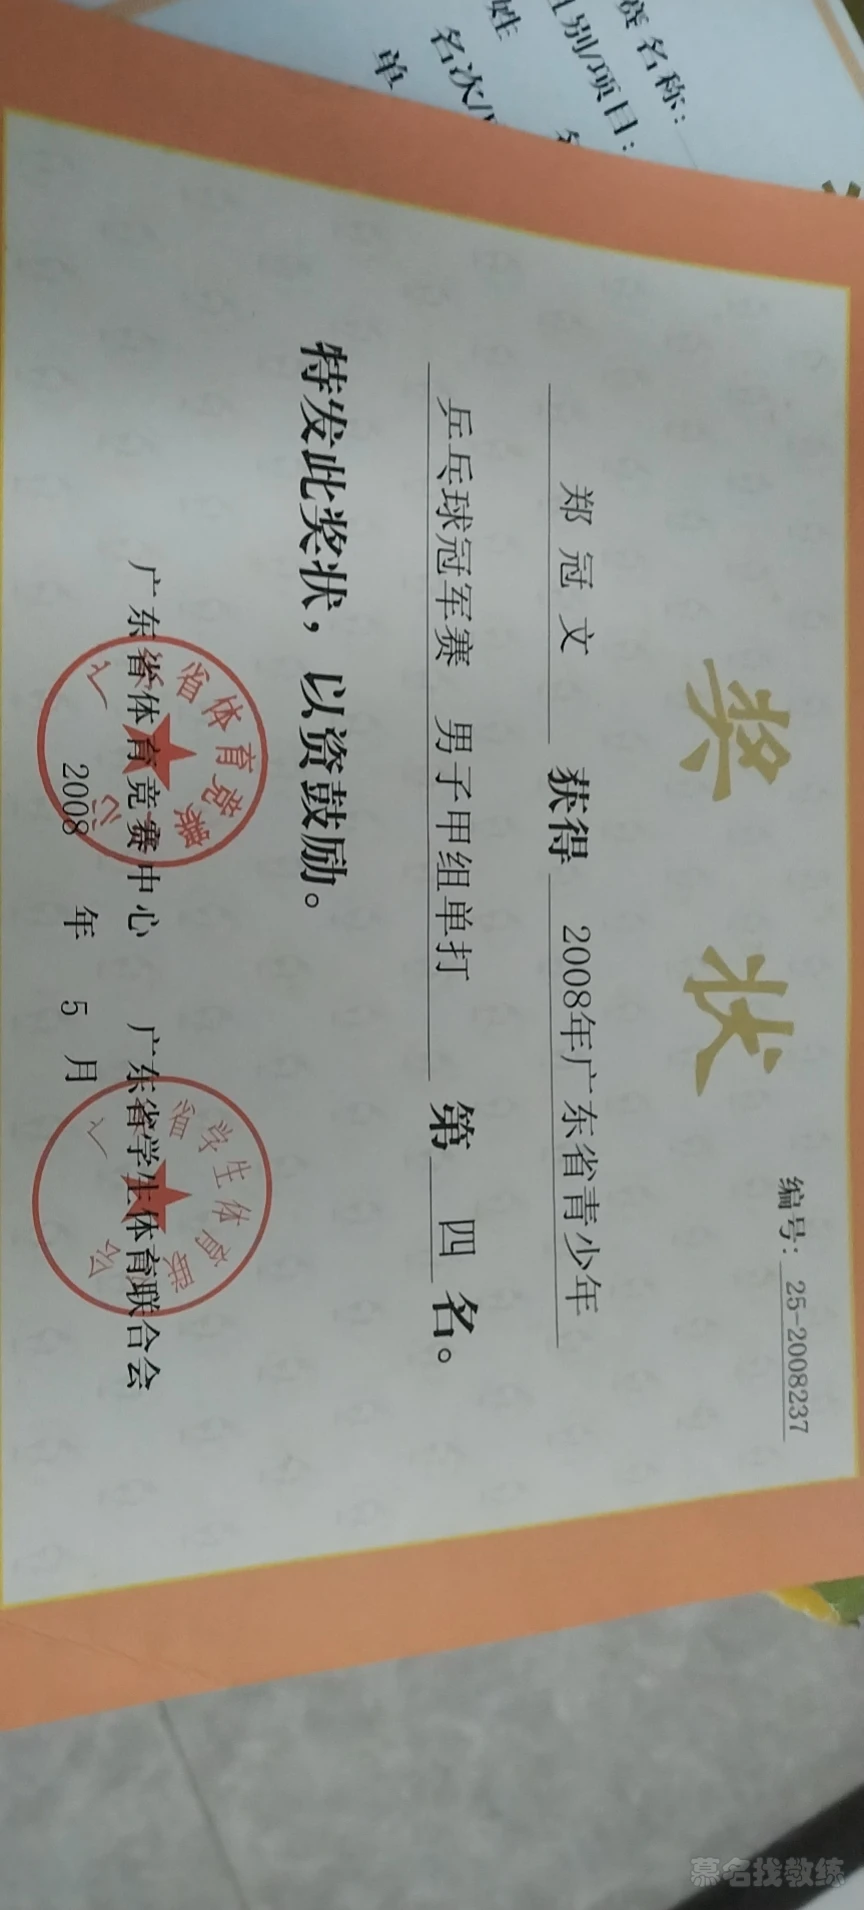 赛名称：
组别/项目：
姓
名次/
单
奖状
编号：25-2008237
郑冠文 获得 2008年广东省青少年
乒乓球冠军赛 男子甲组单打 第四名。
特发此奖状，以资鼓励。
广东省体育竞赛中心 广东省学生体育联合会
2008 年 5 月
省体育竞赛
心
省学生体育联
会
慕名找教练